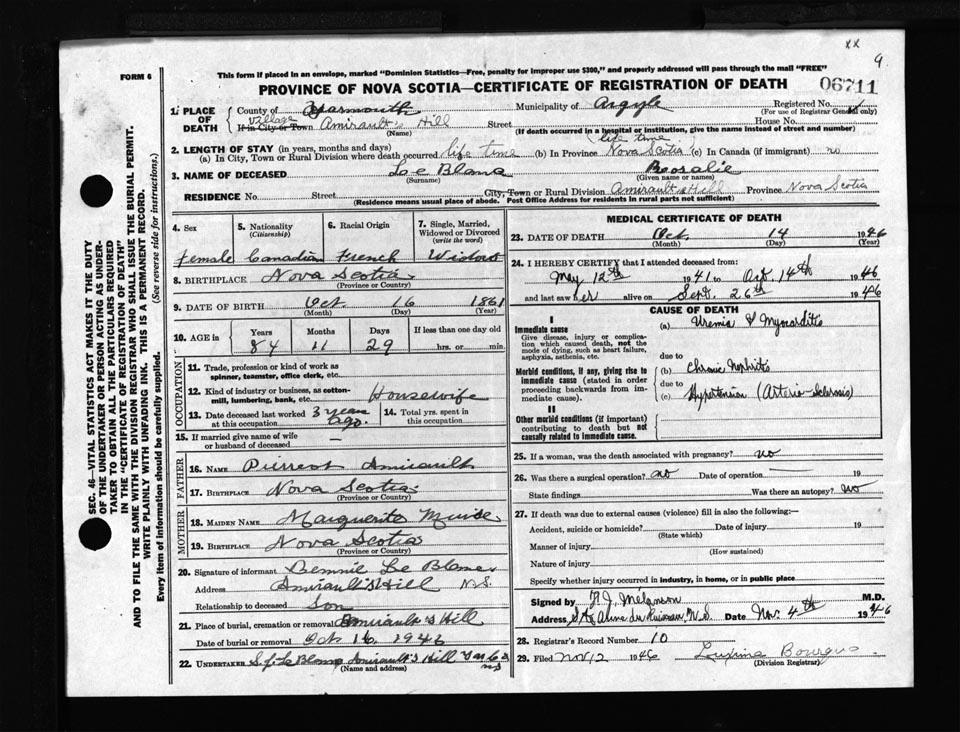 xx
9
FORM 6
This form if placed in an envelope, marked "Dominion Statistics—Free, penalty for improper use $300," and properly addressed will pass through the mail "FREE"
PROVINCE OF NOVA SCOTIA—CERTIFICATE OF REGISTRATION OF DEATH
06711
1. PLACE OF DEATH
County of Yarmouth Municipality of Argyle Registered No.
(For use of Registrar General only)
Village
If in City or Town Amirault's Hill Street House No.
(Name) (If death occurred in a hospital or institution, give the name instead of street and number)
2. LENGTH OF STAY (in years, months and days)
life time
(a) In City, Town or Rural Division where death occurred life time (b) In Province Nova Scotia (c) In Canada (if immigrant) no
3. NAME OF DECEASED Le Blanc Rosalie
(Surname) (Given name or names)
RESIDENCE No. Street City, Town or Rural Division Amirault's Hill Province Nova Scotia
(Residence means usual place of abode. Post Office Address for residents in rural parts not sufficient)
4. Sex
5. Nationality (Citizenship)
6. Racial Origin
7. Single, Married, Widowed or Divorced (write the word)
Female Canadian French Widow
8. BIRTHPLACE Nova Scotia
(Province or Country)
9. DATE OF BIRTH Oct. 16 1861
(Month) (Day) (Year)
10. AGE IN
Years Months Days If less than one day old
84 11 29 hrs. or min.
OCCUPATION
11. Trade, profession or kind of work as spinner, teamster, office clerk, etc.
12. Kind of industry or business, as cotton-mill, lumbering, bank, etc. Housewife
13. Date deceased last worked at this occupation 3 years ago.
14. Total yrs. spent in this occupation
15. If married give name of wife or husband of deceased —
FATHER
16. NAME Amirault
17. BIRTHPLACE Nova Scotia
(Province or Country)
MOTHER
18. MAIDEN NAME Marguerite Muise
19. BIRTHPLACE Nova Scotia
(Province or Country)
20. Signature of informant Bennie Le Blanc
Address Amirault's Hill N.S.
Relationship to deceased Son
21. Place of burial, cremation or removal Amirault's Hill
Date of burial or removal Oct 16, 1946
22. UNDERTAKER S. J. Le Blanc Amirault's Hill Yar Co N.S.
(Name and address)
MEDICAL CERTIFICATE OF DEATH
23. DATE OF DEATH Oct. 14 1946
(Month) (Day) (Year)
24. I HEREBY CERTIFY that I attended deceased from:
May 12th 1941 to Oct 14th 1946
and last saw her alive on Sept. 26th 1946
CAUSE OF DEATH
I
Immediate cause
Give disease, injury or complication which caused death, not the mode of dying, such as heart failure, asphyxia, asthenia, etc.
(a) Uremia & Myocarditis
due to
Morbid conditions, if any, giving rise to immediate cause (stated in order proceeding backwards from immediate cause).
(b) Chronic Nephritis
due to
(c) Hypertension (Arterio-Sclerosis)
II
Other morbid conditions (if important) contributing to death but not causally related to immediate cause.
25. If a woman, was the death associated with pregnancy? no
26. Was there a surgical operation? no Date of operation — 19
State findings Was there an autopsy? no
27. If death was due to external causes (violence) fill in also the following:—
Accident, suicide or homicide? Date of injury 19
(State which)
Manner of injury
(How sustained)
Nature of injury
Specify whether injury occurred in industry, in home, or in public place
Signed by Melanson M.D.
Address Ste Anne du Ruisseau, N.S. Date Nov. 4th 1946
28. Registrar's Record Number 10
29. Filed Nov 12 1946
(Division Registrar)
SEC. 46—VITAL STATISTICS ACT MAKES IT THE DUTY
OF THE UNDERTAKER OR PERSON ACTING AS UNDER-
TAKER TO OBTAIN ALL THE PARTICULARS REQUIRED
IN THE "CERTIFICATE OF REGISTRATION OF DEATH"
AND TO FILE THE SAME WITH THE DIVISION REGISTRAR WHO SHALL ISSUE THE BURIAL PERMIT.
WRITE PLAINLY WITH UNFADING INK. THIS IS A PERMANENT RECORD.
Every item of information should be carefully supplied. (See reverse side for instructions.)